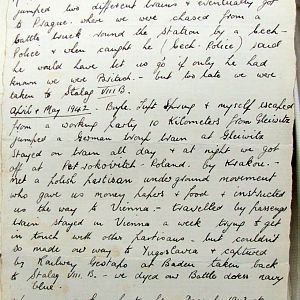 jumped two different trains & eventually got
to Prague. when we were chased from a
Battle truck round the Station by a Czech-
Police & when caught he (Czech-Police) said
he would have let us go if only he had
known we were British. - but too late we were
taken to Stalag VIII B.
April & May 1942 - Boyle, Spring & myself escaped
from a working party 10 Kilometers from Gleiwitz
jumped a German troop train at Gleiwitz
stayed on train all day & at night we got
off at - Poland. by Krakow. -
Met a polish partisan underground movement
who gave us money papers & food & instructed
us the way to Vienna - travelled by passenger
train stayed in Vienna a week trying to get
in touch with other partisans. but couldn't
so made our way to Yugoslavia & captured
by Railway Gestapo at Baden taken back
to Stalag VIII. B. - we dyed our Battle dress navy
blue.